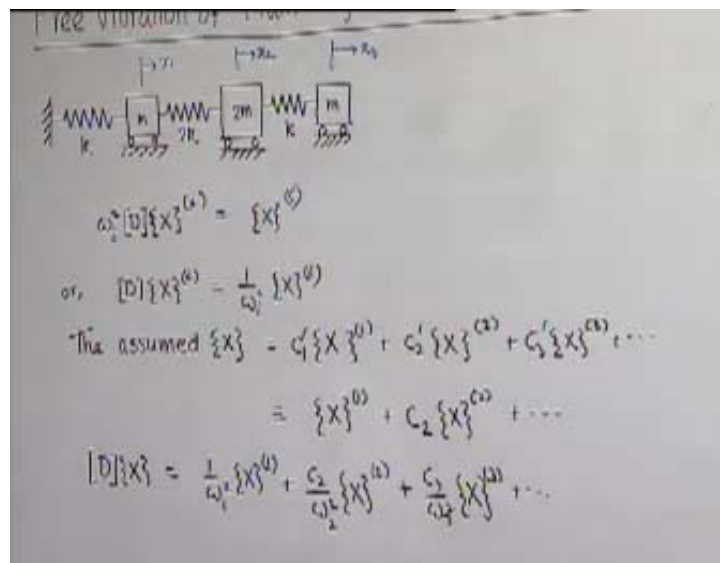 Free Vibration of
x₁ x₂ x₃
m 2m m
k 2k k
ωᵢ²[D]{X}⁽ⁱ⁾ = {X}⁽ⁱ⁾
or, [D]{X}⁽ⁱ⁾ = 1/ωᵢ² {X}⁽ⁱ⁾
The assumed {X} = C₁'{X}⁽¹⁾ + C₂'{X}⁽²⁾ + C₃'{X}⁽³⁾ + ...
= {X}⁽¹⁾ + C₂{X}⁽²⁾ + ...
[D]{X} = 1/ω₁² {X}⁽¹⁾ + C₂/ω₂² {X}⁽²⁾ + C₃/ω₃² {X}⁽³⁾ + ...